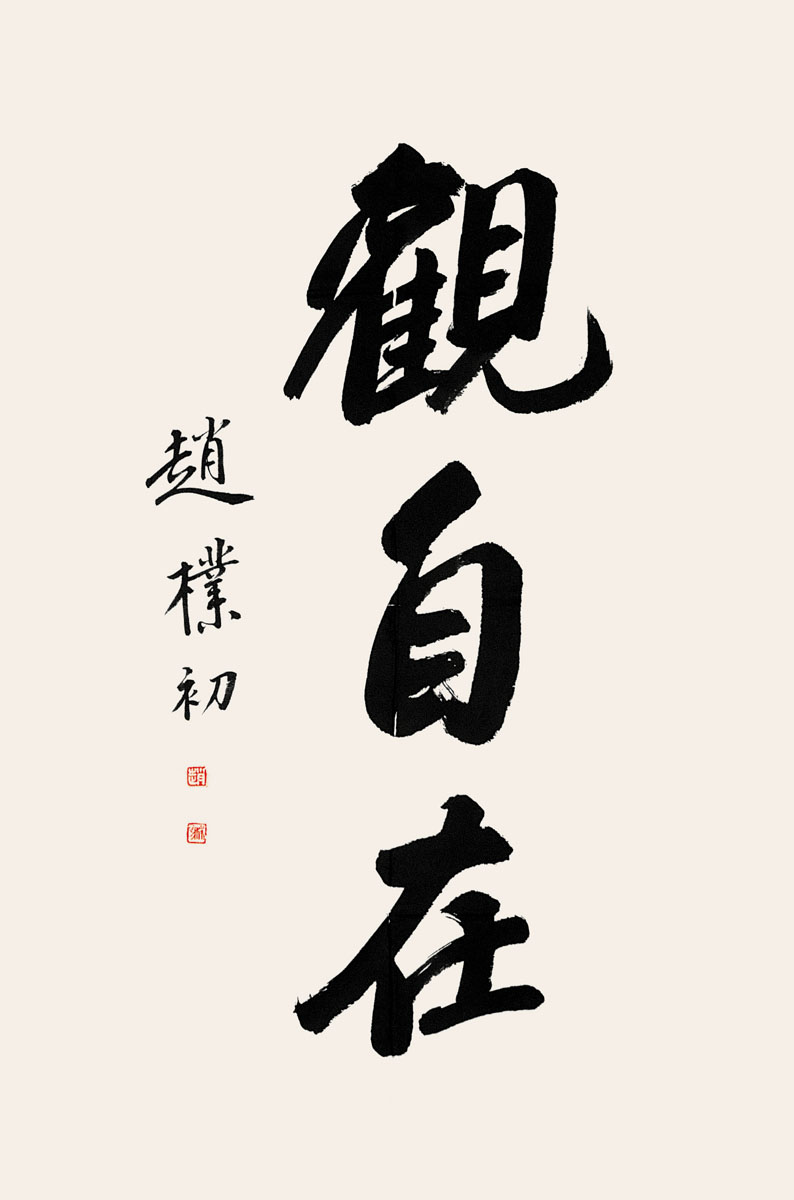 觀自在
趙樸初
趙